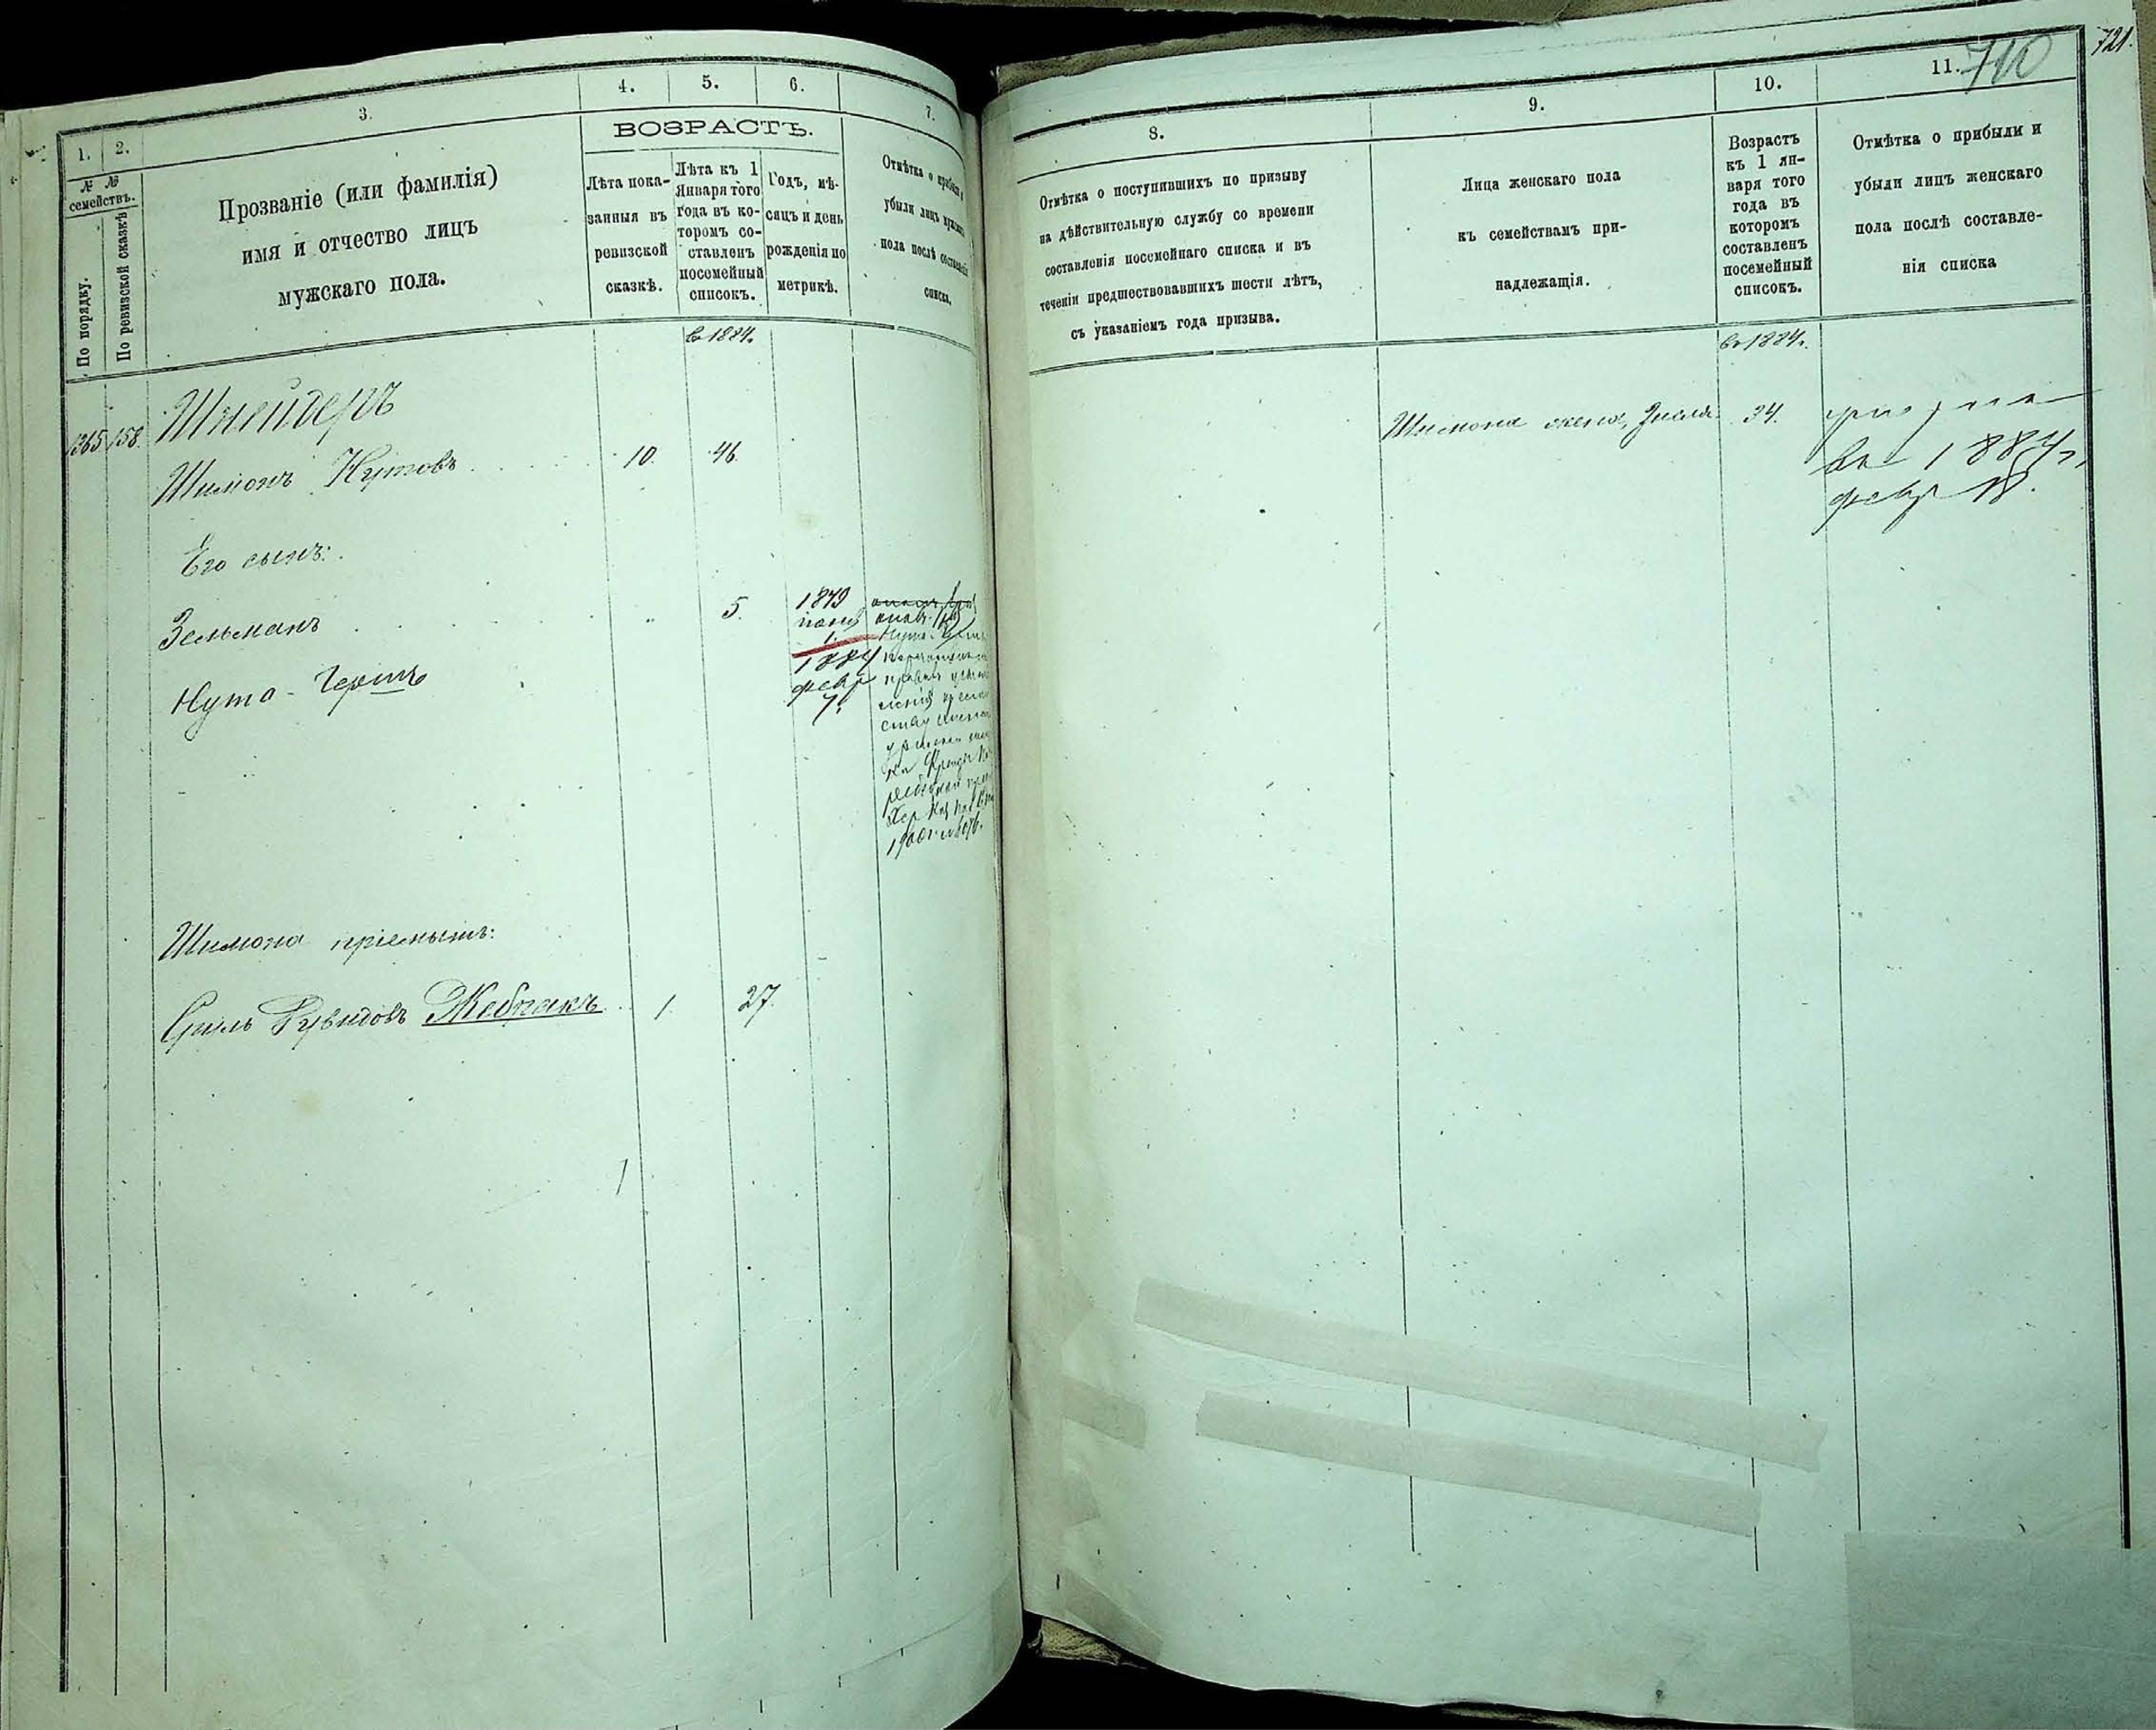 1.
2.
3.
4.
5.
6.
7.
№ №
семействъ.
По порядку.
По ревизской сказкѣ
Прозваніе (или фамилія)
имя и отчество лицъ
мужскаго пола.
ВОЗРАСТЪ.
Лѣта пока-
занныя въ
ревизской
сказкѣ.
Лѣта къ 1
Января того
года въ ко-
торомъ со-
ставленъ
посемейный
списокъ.
Годъ, мѣ-
сяцъ и день
рожденія по
метрикѣ.
Отмѣтка о прибыли и
убыли лицъ мужскаго
пола послѣ составленія
списка.
въ 1884.
1365 158. Шнейдеръ
Шимонъ Нутовъ 10. 46.
Его сынъ:
Зельманъ " 5. 1879
іюня
1.
Нута-Гершъ 1884
февр
7.
Шимона пріемышъ:
Сруль Рувидовъ Жебракъ 1. 27.
8.
9.
10.
11.
710
721.
Отмѣтка о поступившихъ по призыву
на дѣйствительную службу со времени
составленія посемейнаго списка и въ
теченіи предшествовавшихъ шести лѣтъ,
съ указаніемъ года призыва.
Лица женскаго пола
къ семействамъ при-
надлежащія.
Возрастъ
къ 1 ян-
варя того
года въ
которомъ
составленъ
посемейный
списокъ.
Отмѣтка о прибыли и
убыли лицъ женскаго
пола послѣ составле-
нія списка
въ 1884г.
Шимона жена, 34.
1884г.
февр 18.